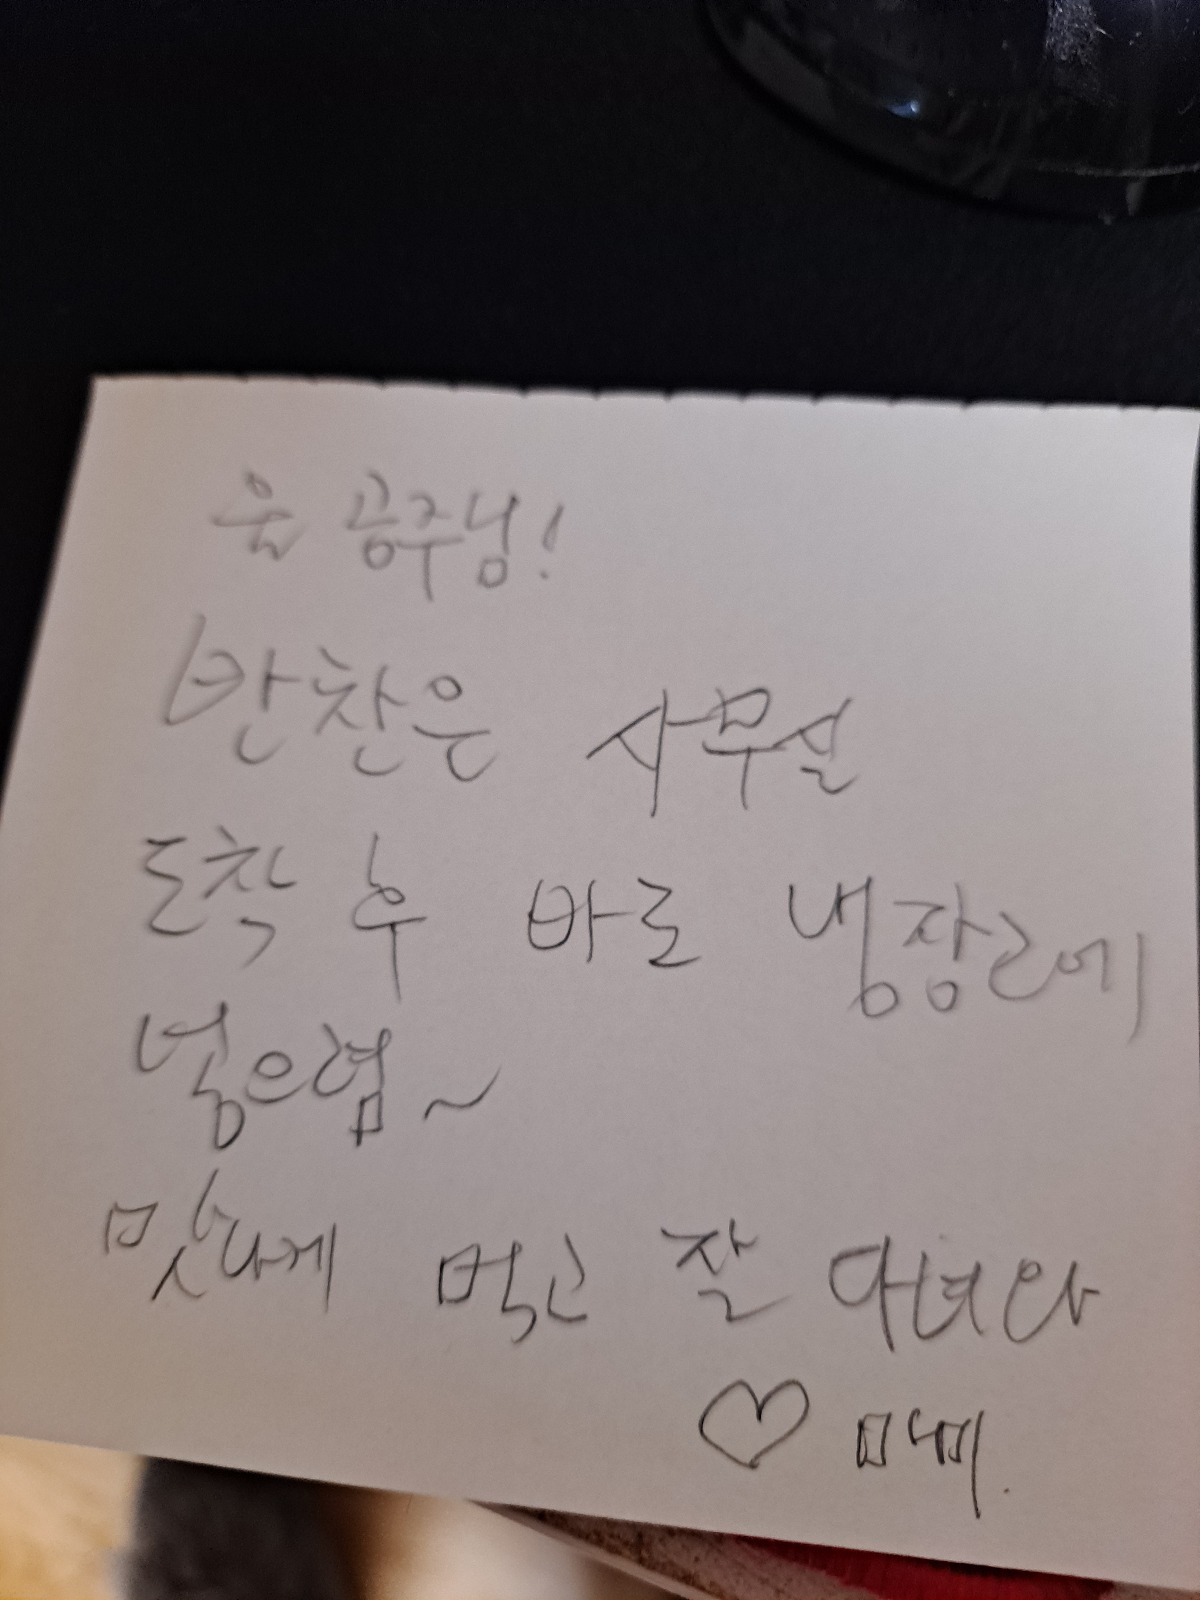 윱 공주님!
반찬은 사무실
도착 후 바로 냉장고에
넣으렴~
맛나게 먹고 잘 다녀와
♡